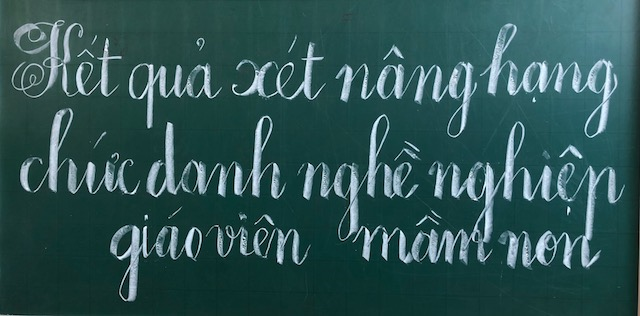 Kết quả xét nâng hạng
chức danh nghề nghiệp
giáo viên mầm non